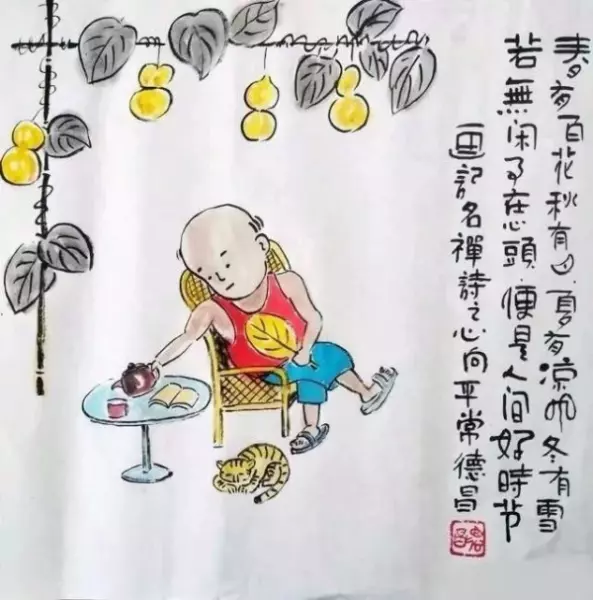 春有百花秋有月夏有凉风冬有雪
若無闲事在心頭便是人间好時节
画記名禪詩之心向平常德昌